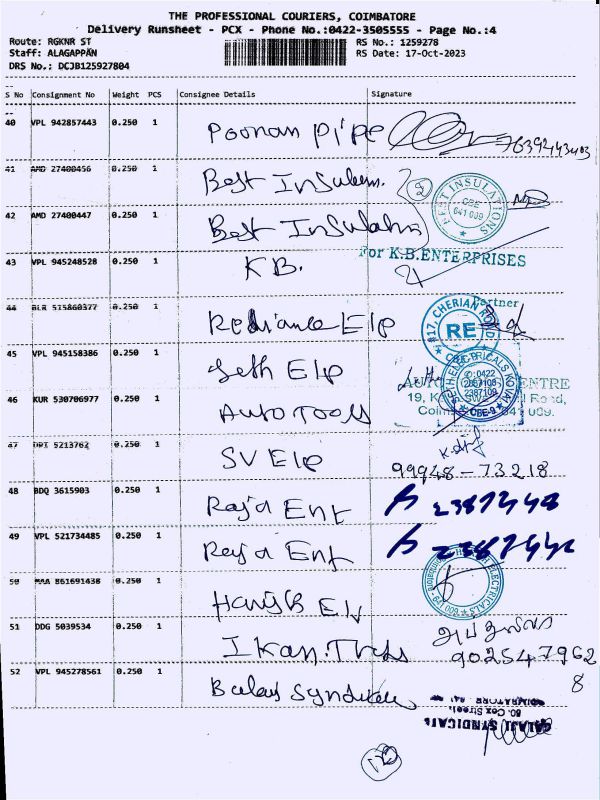 THE PROFESSIONAL COURIERS, COIMBATORE
Delivery Runsheet - PCX - Phone No.:0422-3505555 - Page No.:4
Route: RGKNR ST RS No.: 1259278
Staff: ALAGAPPAN RS Date: 17-Oct-2023
DRS No.: DCJB125927804
S No Consignment No Weight PCS Consignee Details Signature
40 VPL 942857443 0.250 1 Poonam Pipe 7639243403
41 AMD 27400456 0.250 1 Best
BEST INSULATIONS
CBE
641 009
42 AMD 27400447 0.250 1 Best
For K.B.ENTERPRISES
43 VPL 945248528 0.250 1 K B.
Partner
44 BLR 515860377 0.250 1 Reliance Ele
817, CHERIAN ROAD
RE
45 VPL 945158386 0.250 1 Seth Ele
46 KUR 530706977 0.250 1 Auto Tools
0422
2387109
CBE-9
CENTRE
19, Road,
641 009.
47 DPI 5213762 0.250 1 SV Ele
99948-73218
48 BDQ 3615903 0.250 1 Raja Ent
49 VPL 521734485 0.250 1 Raja Ent
50 MAA 861691438 0.250 1
ELECTRICALS
51 DDG 5039534 0.250 1 I Kan.
9025479628
52 VPL 945278561 0.250 1 Balaji Syndicate
COIMBATORE
80, Cox Street,
BALAJI SYNDICATE